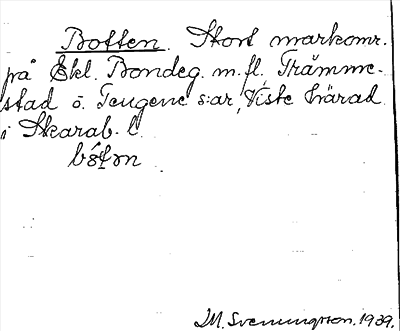 Botten. Stort markomr.
på Ekl. Bondeg. m. fl., Trämme-
stad o. Tengene s:ar, Viste härad
i Skarab. l.
båt on
M. Svenungsson. 1939.